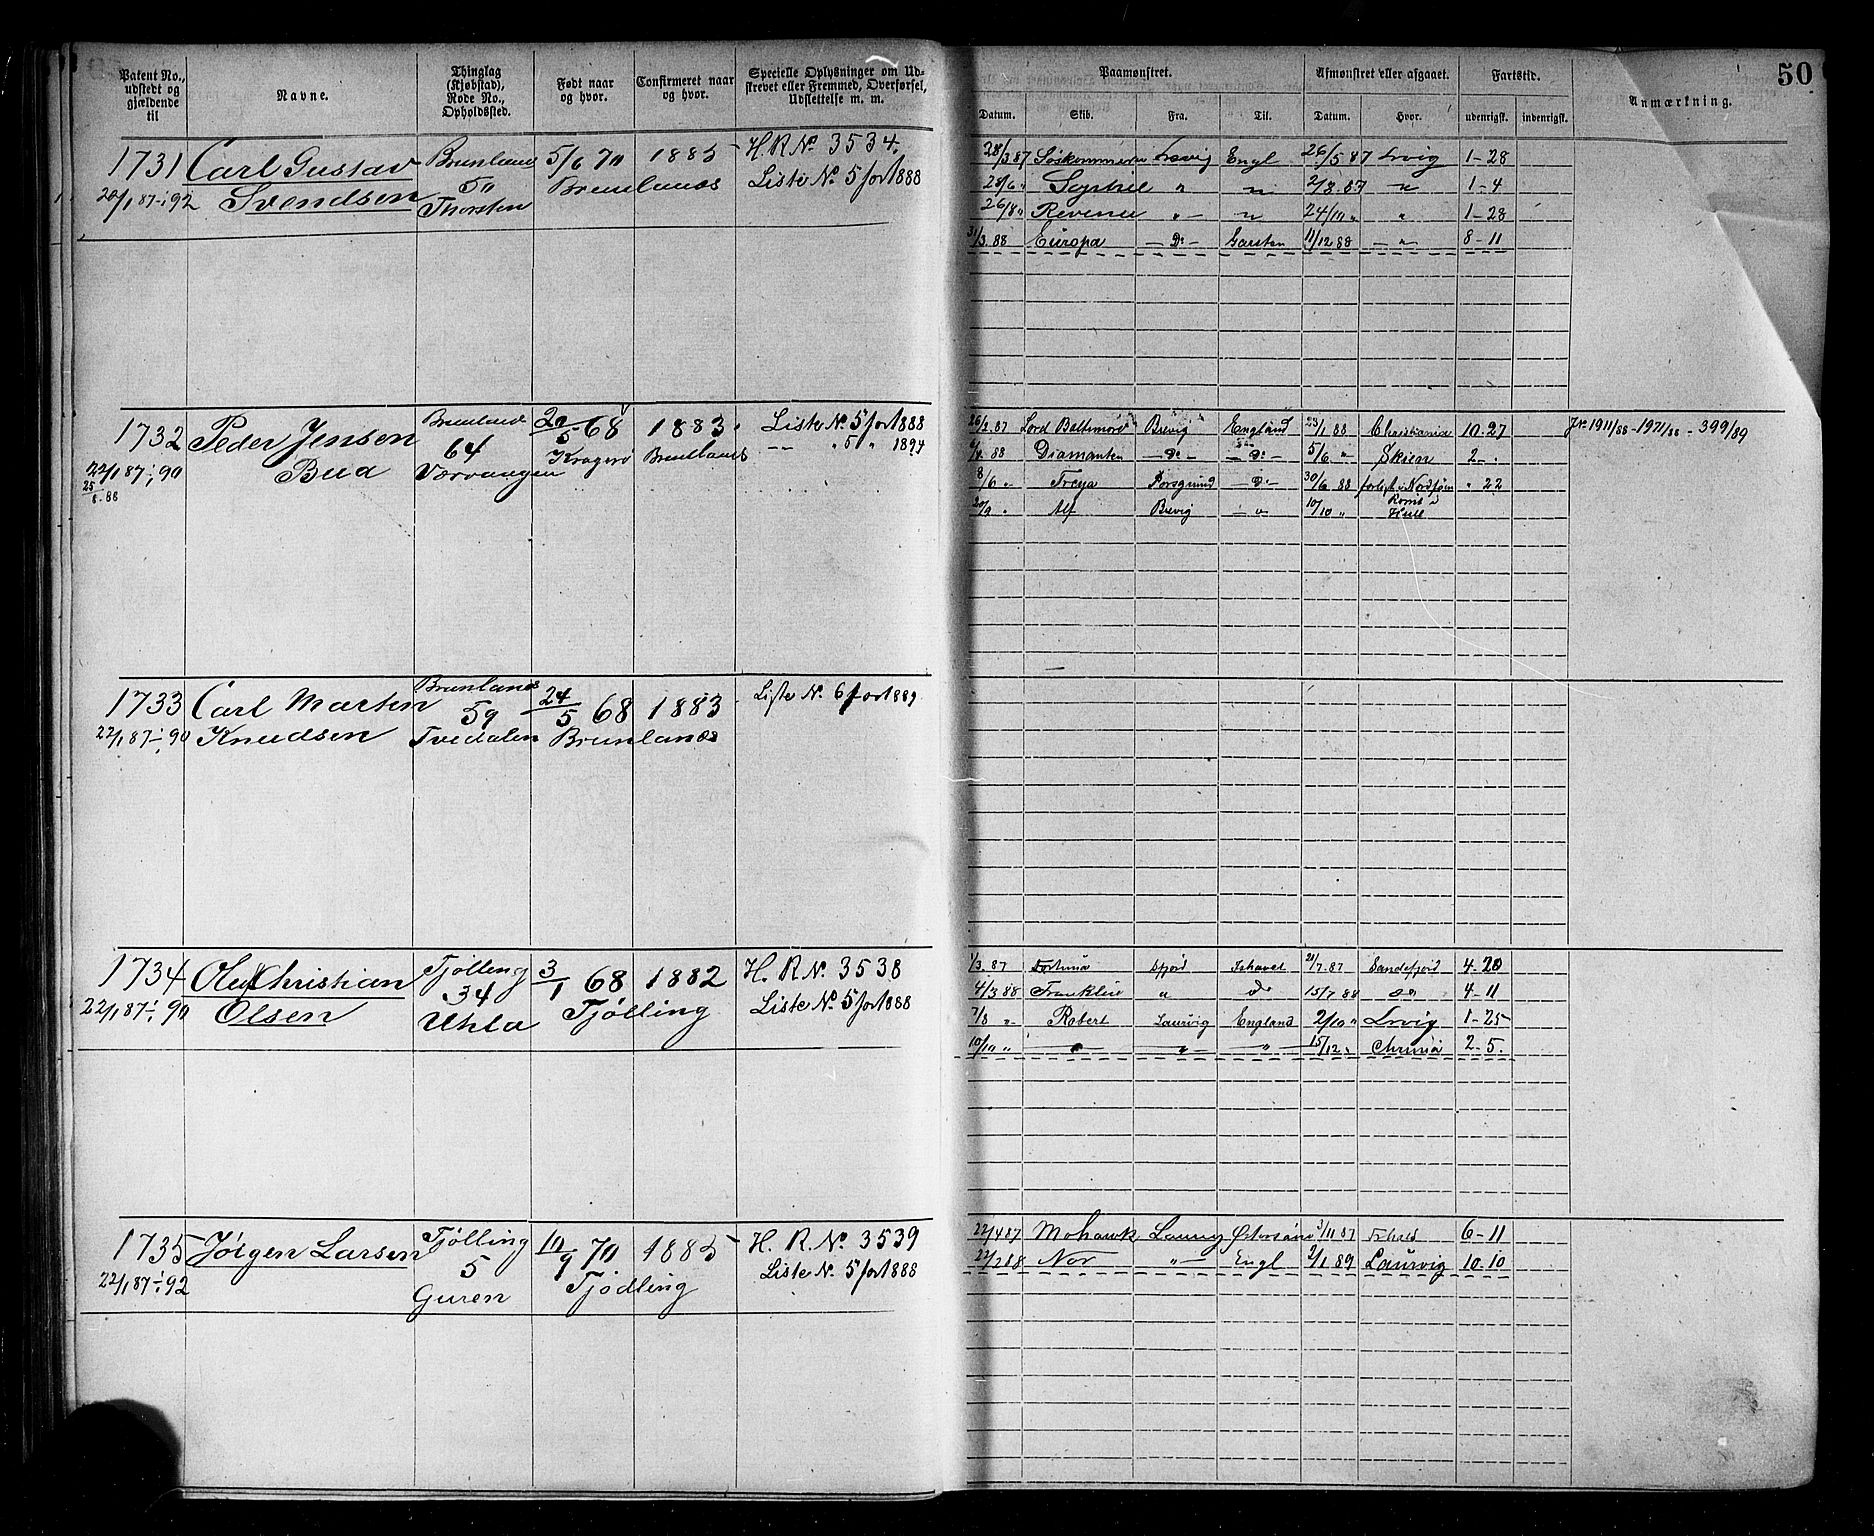 50
Patent No., udstedt og gjældende til
Navne.
Thinglag (Kjøbstad), Rode No., Opholdssted.
Født naar og hvor.
Confirmeret naar og hvor.
Specielle Oplysninger om Udskrevet eller Fremmed, Overførsel, Udslettelse m. m.
Paamønstret.
Afmønstret eller afgaaet.
Fartstid.
Anmærkning.
Datum. Skib. Fra. Til. Datum. Hvor. udenrigsk. indenrigsk.
1731 Carl Gustav Brunlanes 5/6 70 1885 H. R. No. 3534.
50 Brunlanæs Liste No. 5 for 1888
20/1 87-i-92 Svendsen Thorsten
28/3 87 Lrvig Engl 26/5 87 Lrvig 1-28
28/6 " " " 2/8 87 " 1-4
26/8 " Revenue " " 24/10 " " 1-28
31/3 88 Europa - Do - 11/12 88 - " 8-11
1732 Peder Jensen Brunlanes 20/5 68 1883 Liste No. 5 for 1888
64 Kragerø Brunlanes -- " 5 " 1894
22/1 87-i-90 Bua Værvaagen
25/8-88
26/2 87 Lord Baltimore Brevig England 23/1 88 Christiania 10-27 Jr. 1911/88 - 1971/88 - 399/89
4/4 88 Diamanten - Do - - Do - 5/6 " Skien 2-"
8/6 " Freya Porsgrund - Do - 30/6 88 forlist i Nordsjøen " 22
20/9 " Alf Brevig - " 10/10 " Rømt i Hull
1733 Carl Marten Brunlanes 24/5 68 1883 Liste No. 6 for 1889
59
22/1 87-i-90 Knudsen Tvedalen Brunlanæs
1734 Oluf Christian Tjølling 3/1 68 1882 H. R. No. 3538
34 Tjølling Liste No. 5 for 1888
22/1 87-i-90 Olsen Uhla
1/3 87 Fortuna Sfjord Ishavet 21/7 87 Sandefjord 4-20
4/3 88 Franklin " Do 15/7 88 Do 4-11
7/8 " Robert Laurvig England 2/10 " Lrvig 1-25
10/10 " - " - " - " 15/12 " Chrania 2-5.
1735 Jørgen Larsen Tjølling 10/9 70 1885 H. R. No. 3539
5 Tjødling Liste No. 5 for 1888
22/1 87-i-92 Guren
22/4 87 Mohawk Laurvig 3/11 87 6-11
22/2 88 Nor " Engl 2/1 89 Laurvig 10-10